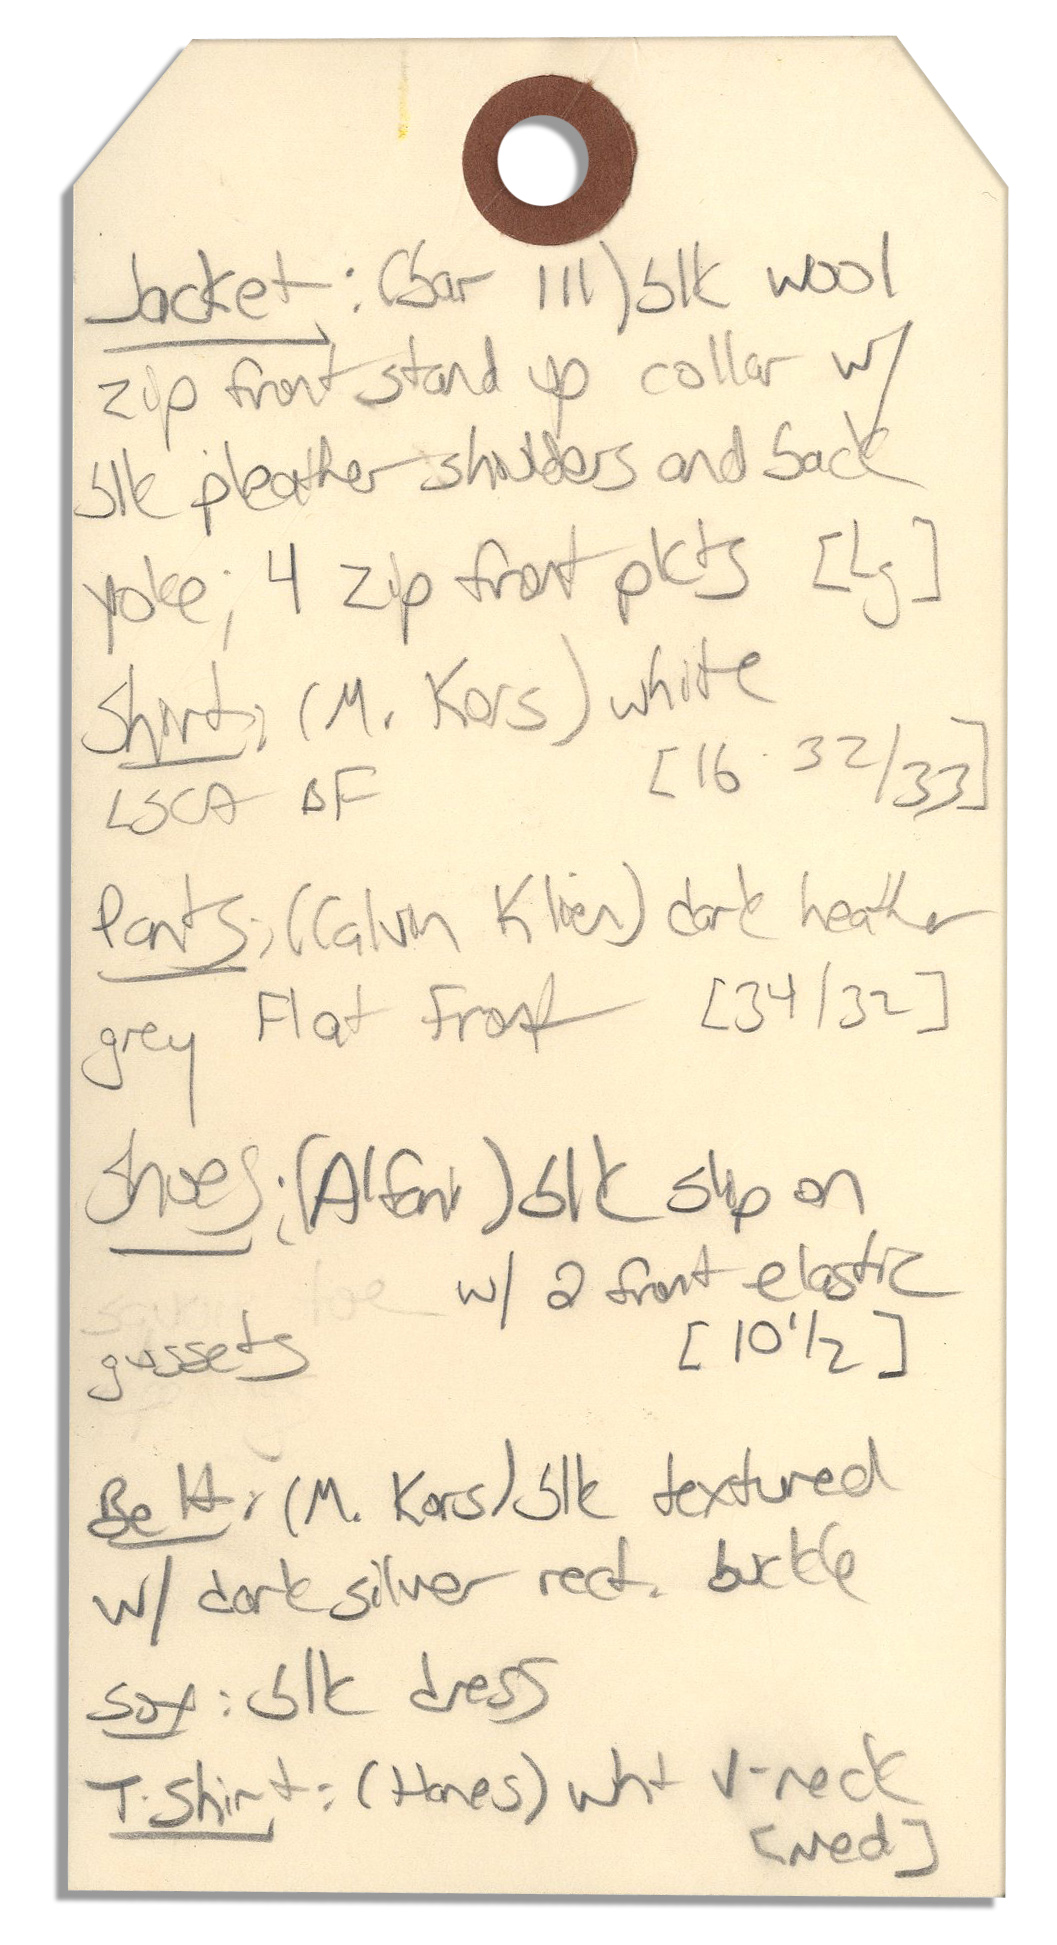 Jacket: (bar III) blk wool
zip front stand up collar w/
blk pleather shoulders and back
yoke; 4 zip front pkts [Lg]
Shirt: (M. Kors) white
LSCA BF [16 32/33]
Pants: (Calvin Klien) dark heather
grey Flat Front [34/32]
Shoes: (Alfani) blk slip on
w/ 2 front elastic
gussets [10 1/2]
Belt: (M. Kors) blk textured
w/ dark silver rect. buckle
sox: blk dress
T-Shirt: (Hanes) wht V-neck
[Med]